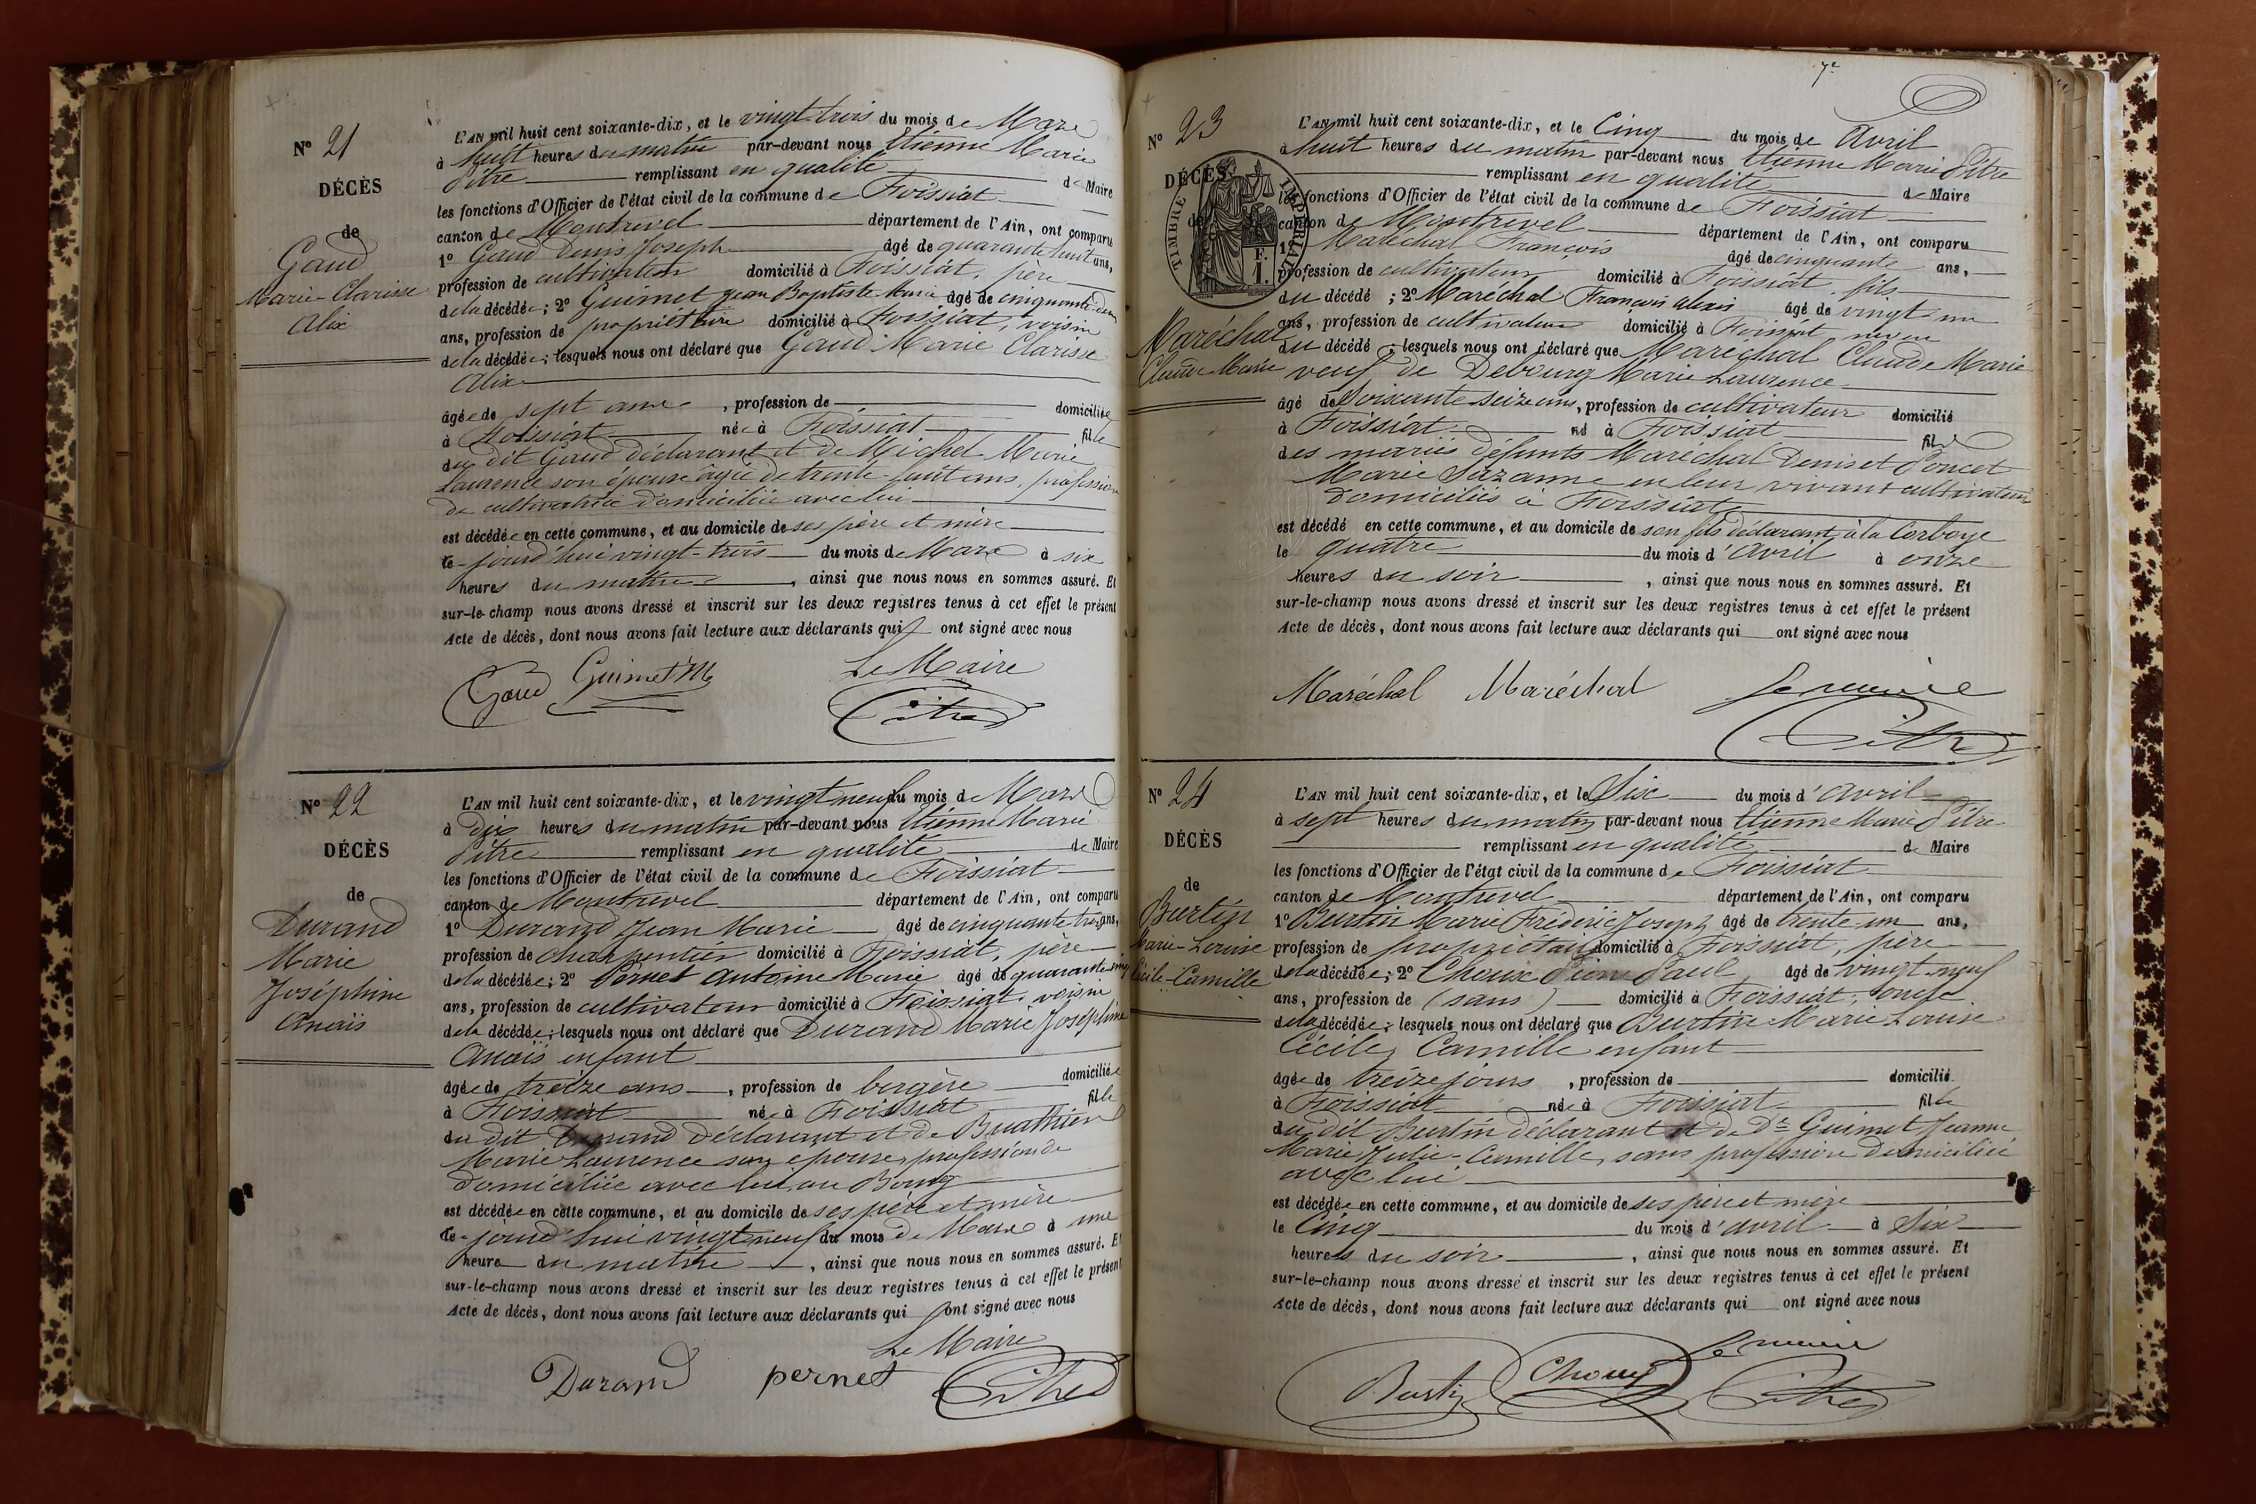 N° 21
DÉCÈS
de
Gaud
Marie-Clarisse
Alix
L'AN mil huit cent soixante-dix, et le vingt-trois du mois de Mars
à huit heures du matin par-devant nous Etienne Marie
Pitre remplissant en qualité de Maire
les fonctions d'Officier de l'état civil de la commune de Foissiat
canton de Montrevel département de l'Ain, ont comparu
1° Gaud Denis Joseph âgé de quarante huit ans,
profession de cultivateur domicilié à Foissiat, père
de la décédée; 2° Guimet Jean Baptiste Marie âgé de cinquante-deux
ans, profession de propriétaire domicilié à Foissiat, voisin
de la décédée; lesquels nous ont déclaré que Gaud Marie Clarisse
Alix
âgée de sept ans, profession de domiciliée
à Foissiat née à Foissiat fille
du dit Gaud déclarant et de Michel Marie
Laurence son épouse âgée de trente-huit ans, profession
de cultivatrice domiciliée avec lui
est décédée en cette commune, et au domicile de ses père et mère
ce-jourd'hui vingt-trois du mois de Mars à six
heures du matin, ainsi que nous nous en sommes assuré. Et
sur-le-champ nous avons dressé et inscrit sur les deux registres tenus à cet effet le présent
Acte de décès, dont nous avons fait lecture aux déclarants qui ont signé avec nous
Le Maire
Gaud Guimet Pitre
N° 22
DÉCÈS
de
Durand
Marie
Joséphine
Anaïs
L'AN mil huit cent soixante-dix, et le vingt neuf du mois de Mars
à dix heures du matin par-devant nous Etienne Marie
Pitre remplissant en qualité de Maire
les fonctions d'Officier de l'état civil de la commune de Foissiat
canton de Montrevel département de l'Ain, ont comparu
1° Durand Jean Marie âgé de cinquante trois ans,
profession de charpentier domicilié à Foissiat, père
de la décédée; 2° Pernet Antoine Marie âgé de quarante cinq
ans, profession de cultivateur domicilié à Foissiat, voisin
de la décédée; lesquels nous ont déclaré que Durand Marie Joséphine
Anaïs enfant
âgée de treize ans, profession de bergère domiciliée
à Foissiat née à Foissiat fille
du dit Durand déclarant et de Buathier
Marie Laurence son épouse, profession de
domiciliée avec lui au Bourg
est décédée en cette commune, et au domicile de ses père et mère
ce-jourd'hui vingt neuf du mois de Mars à une
heure du matin, ainsi que nous nous en sommes assuré. Et
sur-le-champ nous avons dressé et inscrit sur les deux registres tenus à cet effet le présent
Acte de décès, dont nous avons fait lecture aux déclarants qui ont signé avec nous
Le Maire
Durand pernet Pitre
7e
N° 23
DÉCÈS
de
TIMBRE IMPERIAL
F.
1.
Maréchal
Claude Marie
L'AN mil huit cent soixante-dix, et le Cinq du mois de Avril
à huit heures du matin par-devant nous Etienne Marie Pitre
remplissant en qualité de Maire
les fonctions d'Officier de l'état civil de la commune de Foissiat
canton de Montrevel département de l'Ain, ont comparu
1° Maréchal François âgé de cinquante ans,
profession de cultivateur domicilié à Foissiat, fils
du décédé; 2° Maréchal François Alexis âgé de vingt-un
ans, profession de cultivateur domicilié à Foissiat, neveu
du décédé; lesquels nous ont déclaré que Maréchal Claude Marie
veuf de Debourg Marie Laurence
âgé de Soixante seize ans, profession de cultivateur domicilié
à Foissiat né à Foissiat fils
des mariés défunts Maréchal Denis et Poncet
Marie Suzanne en leur vivant cultivateurs
domiciliés à Foissiat
est décédé en cette commune, et au domicile de son fils déclarant, à la Corbaye
le quatre du mois d'avril à onze
heures du soir, ainsi que nous nous en sommes assuré. Et
sur-le-champ nous avons dressé et inscrit sur les deux registres tenus à cet effet le présent
Acte de décès, dont nous avons fait lecture aux déclarants qui ont signé avec nous
Maréchal Maréchal Le maire
Pitre
N° 24
DÉCÈS
de
Burtin
Marie-Louise
Cécile-Camille
L'AN mil huit cent soixante-dix, et le Six du mois d'avril
à sept heures du matin par-devant nous Etienne Marie Pitre
remplissant en qualité de Maire
les fonctions d'Officier de l'état civil de la commune de Foissiat
canton de Montrevel département de l'Ain, ont comparu
1° Burtin Marie Fréderic Joseph âgé de trente-un ans,
profession de propriétaire domicilié à Foissiat, père
de la décédée; 2° Choux Pierre Paul âgé de vingt-neuf
ans, profession de (sans) domicilié à Foissiat, oncle
de la décédée; lesquels nous ont déclaré que Burtin Marie Louise
Cécile, Camille enfant
âgée de treize jours, profession de domicilié
à Foissiat née à Foissiat fille
du dit Burtin déclarant et de De Guimet Jeanne
Marie Julie-Camille, sans profession domiciliée
avec lui
est décédée en cette commune, et au domicile de ses père et mère
le Cinq du mois d'avril à Six
heures du soir, ainsi que nous nous en sommes assuré. Et
sur-le-champ nous avons dressé et inscrit sur les deux registres tenus à cet effet le présent
Acte de décès, dont nous avons fait lecture aux déclarants qui ont signé avec nous
Le maire
Burtin Choux Pitre